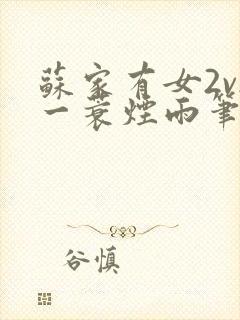 蘇家有女2v
一蓑煙雨筆
谷慎